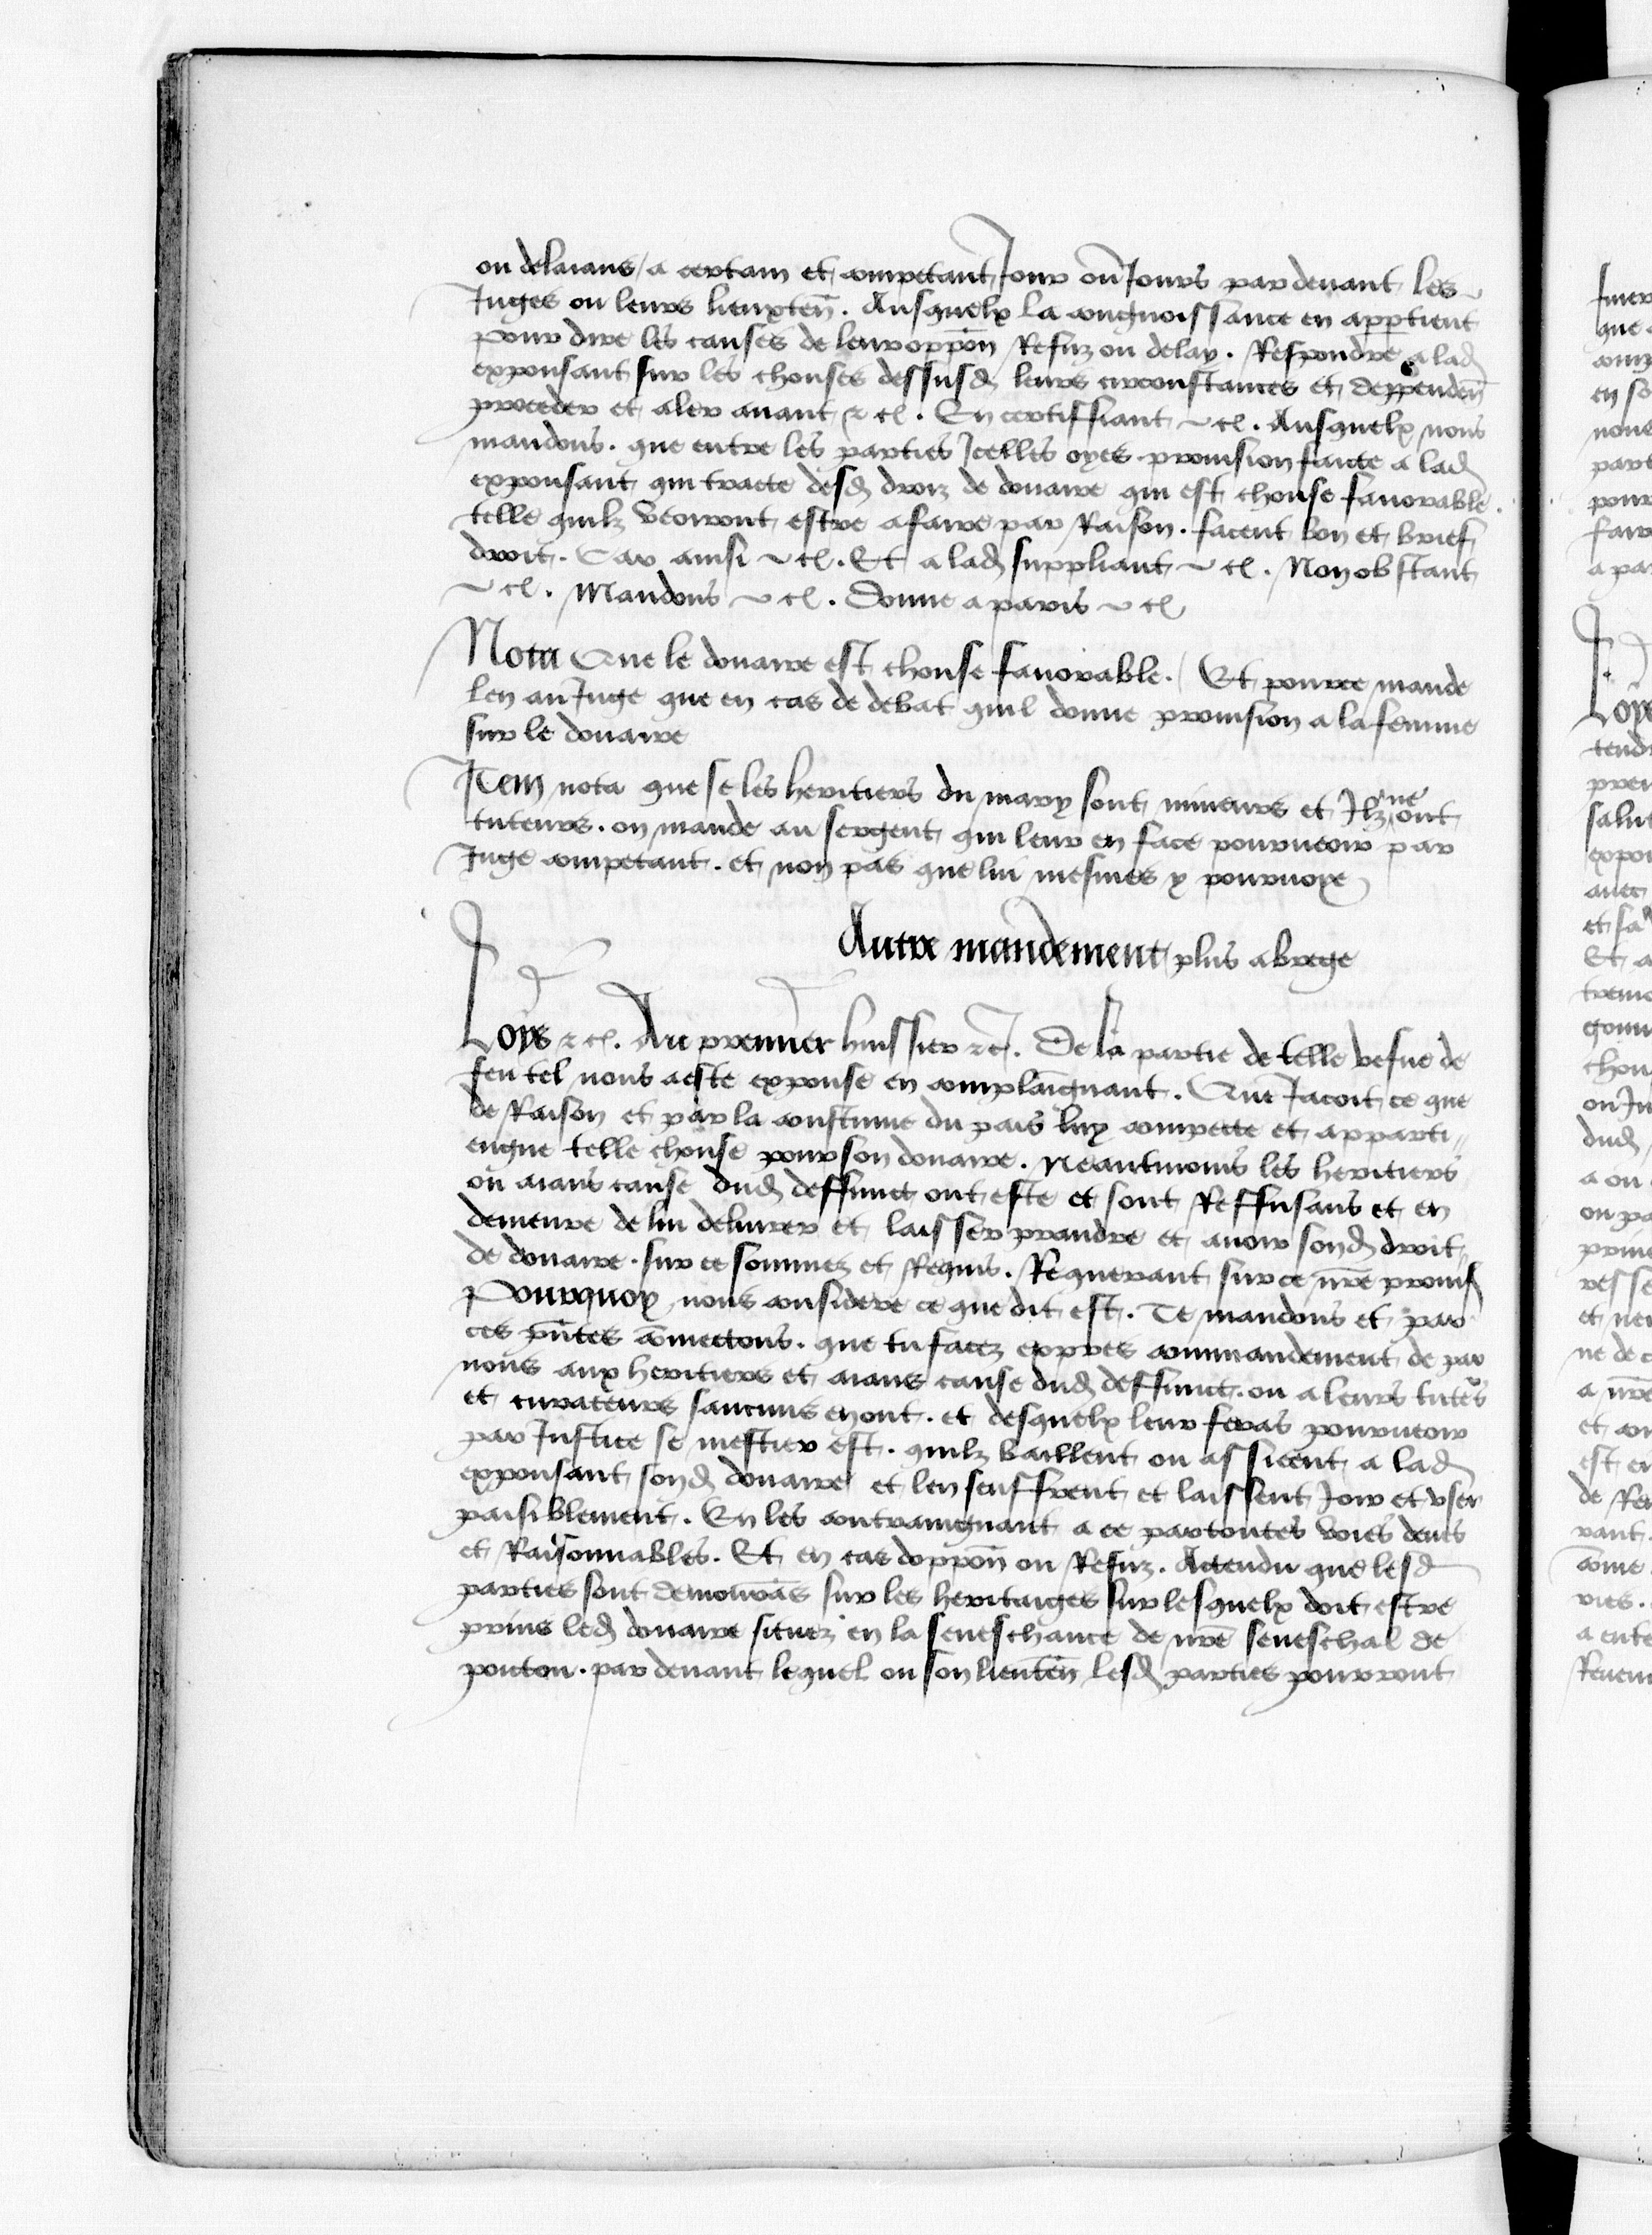 ou delaians a certain et competant Jour ou Jours par devant les
Juges ou leurs lieuxten̄. Ausquelx la congnoissance en apptient
pour dire les causes de leur oppon̄ Refuz ou delay. Respondre a lad
exposant sur les chouses dessusd leurs circonstances et deppenden̄
proceder et aler avant & c. En certiffiant & c. Ausquelx nous
mandons. que entre les parties Icelles oyes provision faicte a lad
exposant qui tracte desd droiz de douaire qui est chouse favorable.
telle quilz verront estre a faire par Raison. facent bon et brief
droit. Car ainsi & c. Et a lad suppliant & c. Non obstant
& c. Mandons & c. Donne a paris & c
Nota Que le douaire est chouse favorable. Et pource mande
len au Juge que en cas de debat quil donne provision a la femme
sur le douaire
Item nota que se les heritiers du mary sont mineurs et Ilz ne ont
tuteurs. on mande au sergent qui leur en face pourveoir par
Juge competant. et non pas que lui mesmes y pourvoye
Autre mandement plus abrege
Loys & c. Au premier huissier & c. De la partie de telle vefve de
feu tel nous a este expouse en complaignant. Que Jacoit ce que
de Raison et par la coustume du pais luy compecte et apparti"
engne telle chouse pour son douaire. Neantmoins les heritiers
ou aians cause dud deffunct ont este et sont Reffusans et en
demeure de lui delivrer et laisser prandre et avoir sond droit
de douaire. sur ce sommez et Requis. Requerant sur ce nr̄e provis
Pourquoy nous considere ce que dit est. Te mandons et par
ces pn̄tes com̄ectons. que tu facez expres commandement de par
nous aux heritiers et aians cause dud deffunct. ou a leurs tutes
et curateurs saucuns en ont. et desquelx leur feras pourveoir
par Justice se mestier est. quilz baillent ou assicent a lad
exposant sond douaire et len seuffrent et laissent Joir et user
paisiblement. En les contraingnant a ce par toutes voies deues
et Raisonnables. Et en cas doppon̄ ou Refuz. Actendu que lesd
parties sont demourās sur les heritaiges sur lesquelx doit estre
prins led douaire situez en la seneschaucee de nr̄e seneschal de
poictou. par devant lequel ou son lieuten̄ lesd parties pourront